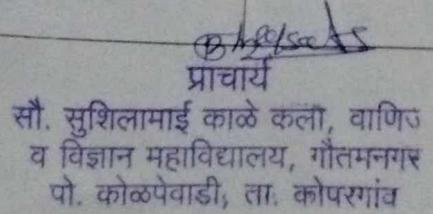 प्राचार्य
सौ. सुशिलामाई काळे कला, वाणिज
व विज्ञान महाविद्यालय, गौतमनगर
पो. कोळपेवाडी, ता. कोपरगांव